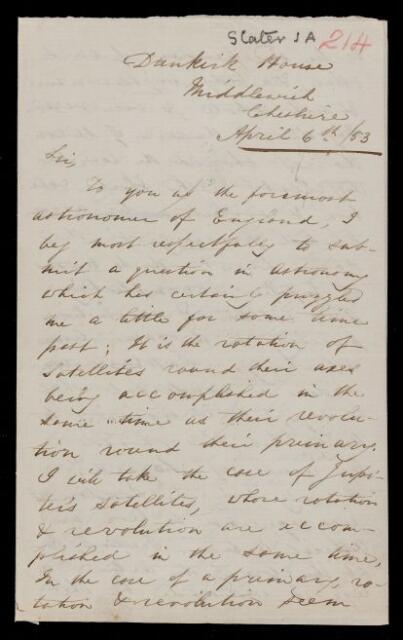 Slater J A 214
Dunkirk House
Middlewich
Cheshire
April 6th /53
Sir,
To you as the foremost
astronomer of England, I
beg most respectfully to sub-
mit a question in astronomy
which has certainly puzzled
me a little for some time
past; It is the rotation of
satellites round their axes
being accomplished in the
same time as their revolu-
tion round their primary.
I will take the case of Jupi-
ter's satellites, whose rotation
& revolution are accom-
plished in the same time,
In the case of a primary, ro-
tation & revolution seem